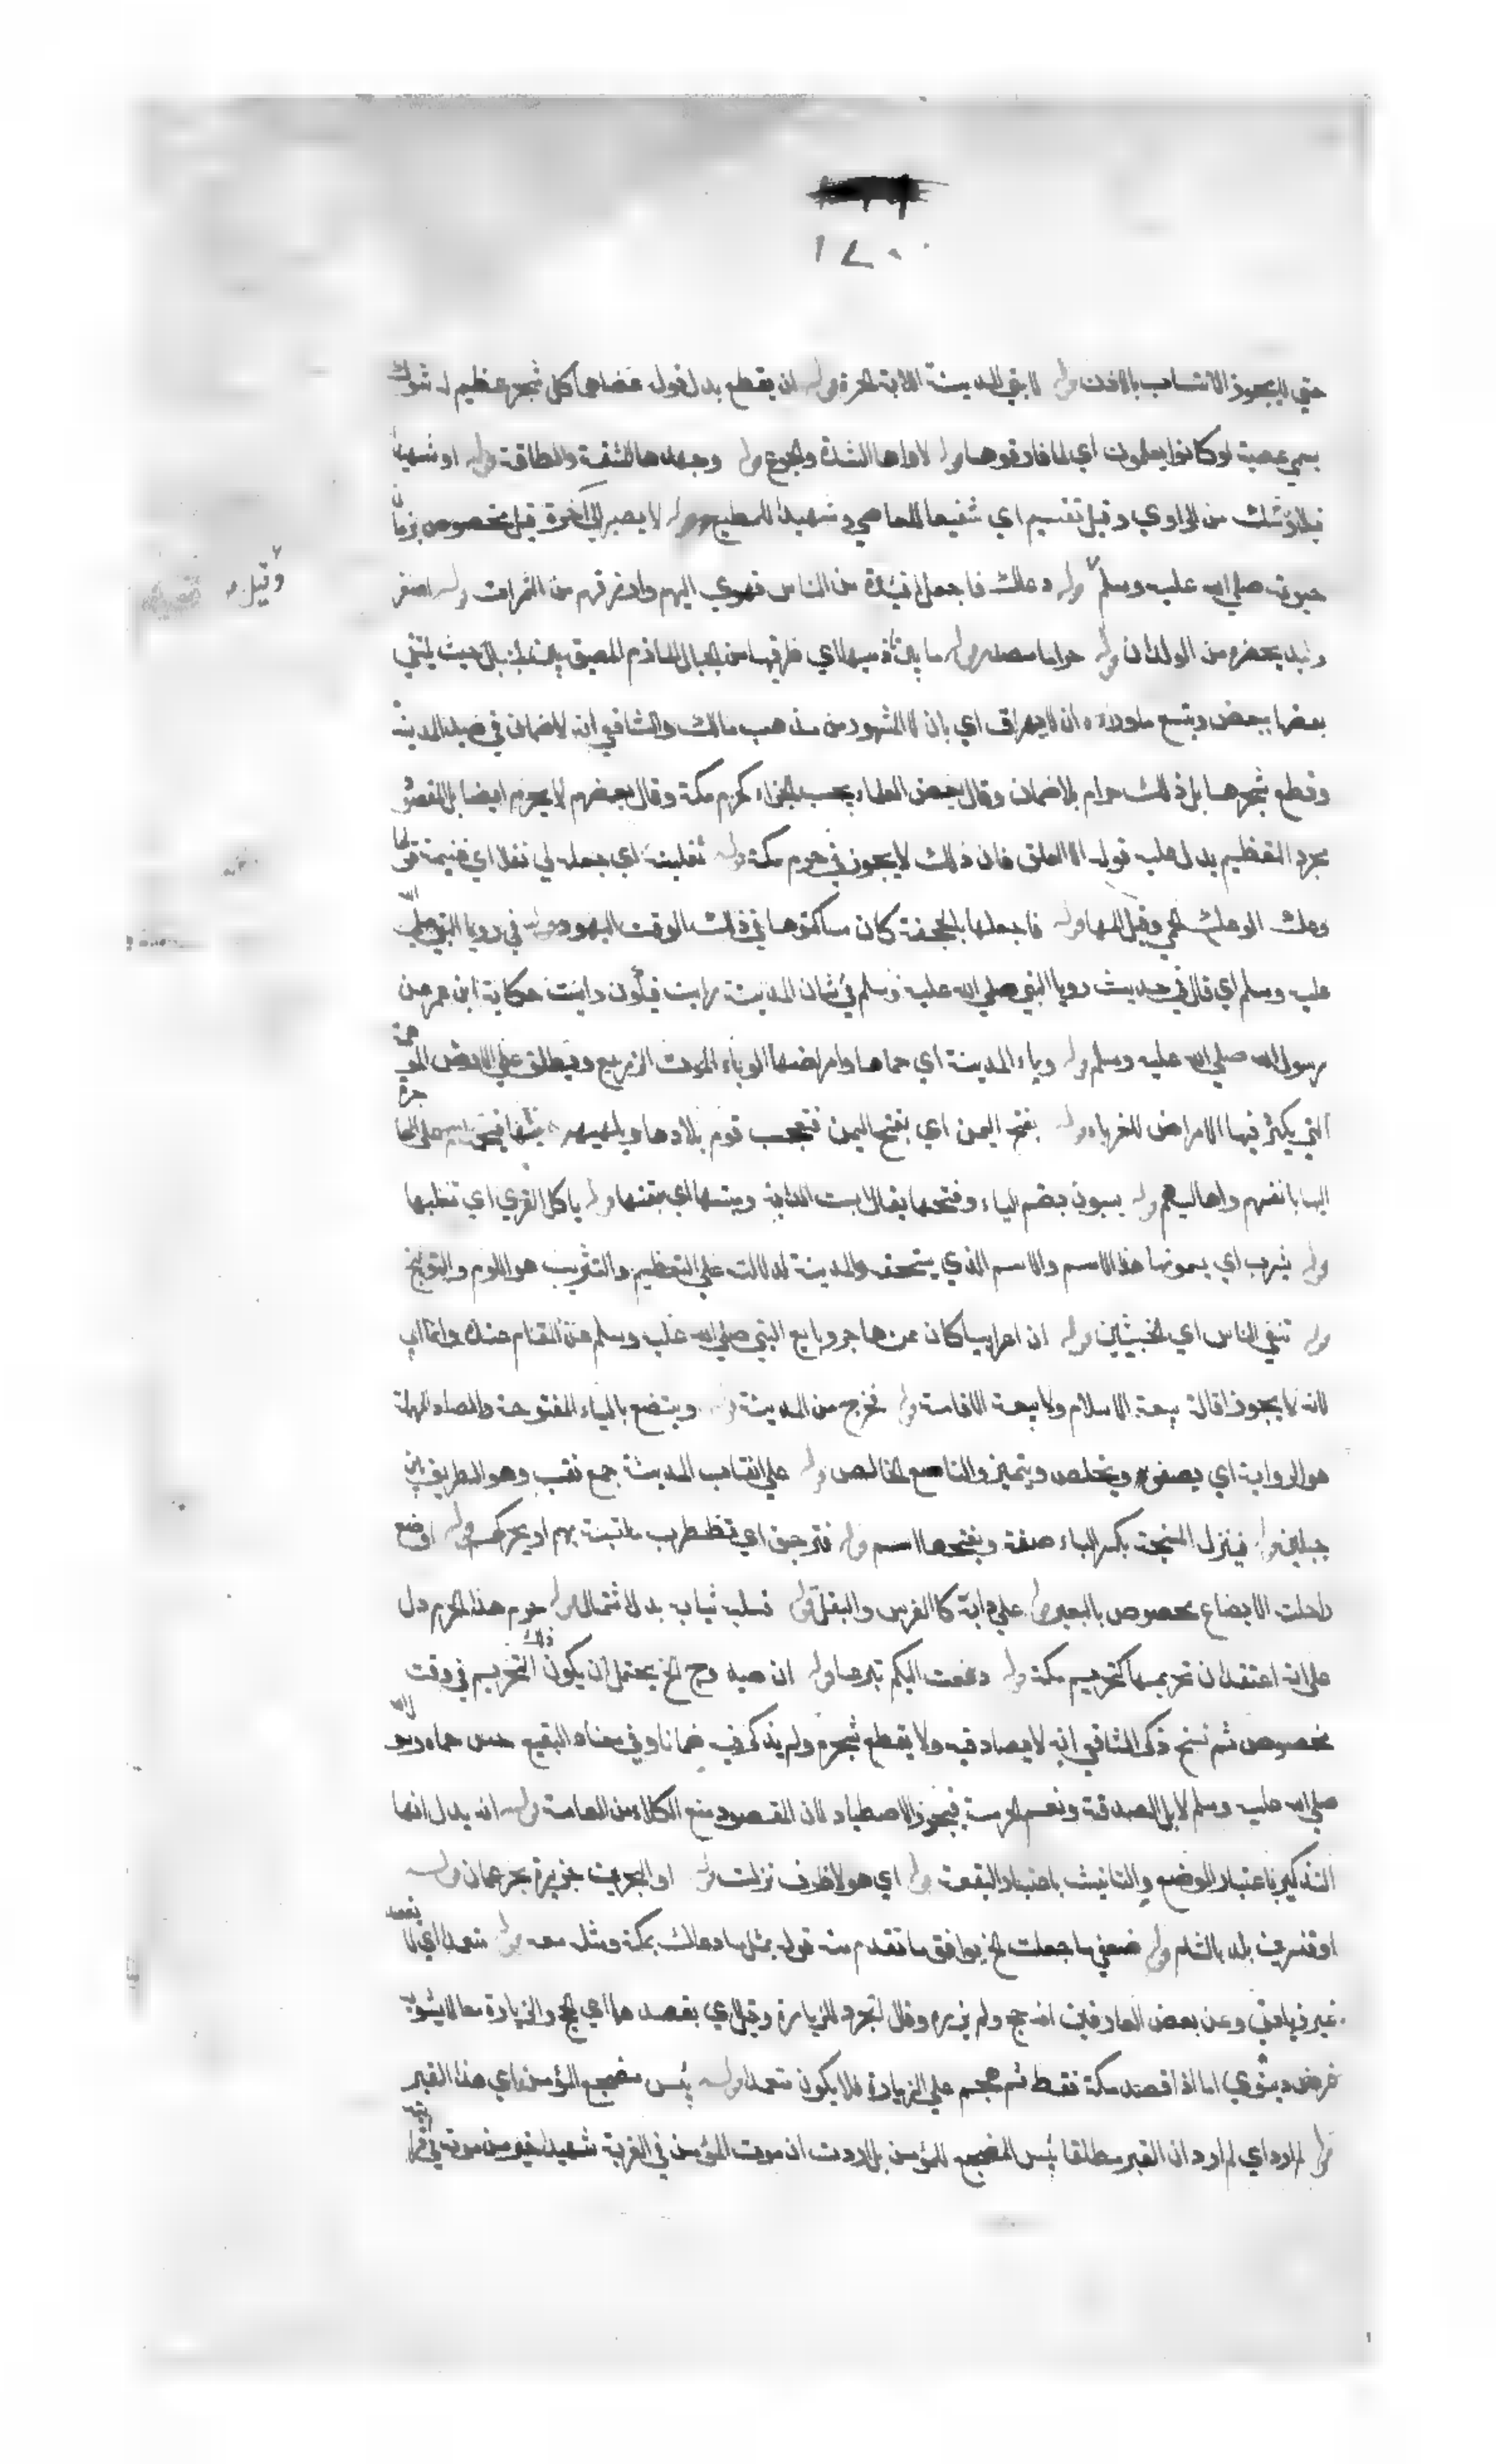 ١٧٠
حتي لا يجوز الانتساب بالاذن قوله لابتي المدينة اللابة الحرة قوله ان يقطع بدل قوله عضاهها كل شجر عظيم له شوك
يسمي عضة لو كانوا يعلمون اي لما فارقوها قوله لاواها الشدة والجوع قوله وجهدها المشقة والطاقة قوله او شهيدا
قيل او شك من الراوي وقيل تقسيم اي شفيعا للعاصي وشهيدا للمطيع قوله لا يصبر الي آخره قيل مخصوص بزمان
حيوته صلي الله عليه وسلم وقيل قوله دعاك فاجعل افئدة من الناس تهوي اليهم وارزقهم من الثمرات قوله اصغر
وليد يحضره من الولدان قوله حراما مصدر قوله ما بين مازميها اي طرفيها من الجبال المازم المضيق بين الجبال حيث يلتقي
بعضها ببعض ويتسع ما وراه ان لا يهراق اي بان لا المشهور من مذهب مالك والشافعي انه لا ضمان في صيد المدينة
وقطع شجرها بل ذلك حرام بلا ضمان وقال بعض العلماء يجب الجزاء كحرم مكة وقال بعضهم لا يحرم ايضا بل المقصود
مجرد التعظيم يدل عليه قوله الا لعلف فان ذلك لا يجوز في حرم مكة قوله نفلينه اي جعله لي نفلا اي غنيمة قولها
وعك الوعك الحمي وقيل المها قوله فاجعلها بالجحفة كان ساكنوها في ذلك الوقت اليهود قوله في رويا النبي صلي الله
عليه وسلم اي قال في حديث رويا النبي صلي الله عليه وسلم في شان المدينة رايت فيكون رايت حكاية ابن عمر عن
رسول الله صلي الله عليه وسلم قوله وباء المدينة اي حماها وامراضها الوباء الموت الذريع ويطلق علي الارض الوخمة
التي يكثر فيها الامراض للغرباء قوله يفتح اليمن اي يفتح اليمن فتعجب قوم بلادها
اليها بانفسهم واهاليهم قوله يبسون بضم الياء وفتحها يقال ابست الدابة وبستها اي سقتها قوله ياكل القري اي تغلبها
قوله يثرب اي يسمونها هذا الاسم والاسم الذي يستحقه والمدينة لدلالته علي التعظيم والتثريب هو اللوم والتوبيخ
قوله تنفي الناس اي الخبيثين قوله ان اعرابيا كان ممن هاجر وبايع النبي صلي الله عليه وسلم علي المقام عنده وانما ابي
لانه لا يجوز اقالة بيعة الاسلام ولا بيعة الاقامة قوله فخرج من المدينة قوله وينصع بالياء المفتوحة والصاد المهملة
هو الرواية اي يصفو ويخلص ويتميز والناصع الخالص قوله علي انقاب المدينة جمع نقب وهو الطريق بين
جبلين قوله فينزل السبخة بكسر الباء صفة وبفتحها اسم قوله فترجف اي تضطرب ملتبسة بهم او يحركهم قوله اوضع
راحلته الايضاع مخصوص بالبعير قوله علي دابة كالفرس والبغل قوله فسلبه ثيابه بدل اشتمال قوله حرم هذا الحرم دل
علي انه اعتقد ان تحريمها كتحريم مكة قوله دفعت اليكم تبرعا قوله ان صيد وج الخ يحتمل ان يكون ذلك التحريم في وقت
مخصوص ثم نسخ ذكر الشافعي انه لا يصاد فيه ولا يقطع شجره ولم يذكر فيه ضمانا وفي معناه البقيع حمي حماه رسول الله
صلي الله عليه وسلم لابل الصدقة ونعم الجزية فيجوز الاصطياد لان المقصود منع الكلاء من العامة قوله انه بدل انها
التذكير باعتبار الموضع والتانيث باعتبار البقعة قوله اي هولا ظرف نزلت قوله او البحرين جزيرة ببحر عمان قوله
او قنسرين بلد بالشام قوله ضعفي ما جعلت الخ يوافق ما تقدم منه قوله بمثل ما دعاك بمكة ومثله معه قوله متعمدا اي لا يقصد
غير زيارتي وعن بعض العارفين انه حج ولم يزره وقال اتجرد للزيارة وقيل اي بقصدهما اي الحج والزيارة معا لا يشوبه
غرض دنيوي اما اذا قصد مكة فقط ثم هجم علي الزيادة فلا يكون متعمدا قوله بئس مضجع المؤمن اي هذا القبر
قوله لم ارد اي لم ارد ان القبر مطلقا بئس المضجع للمؤمن بل اردت ان موت المؤمن في الغربة شهيدا خير من موته في فراشه
وقيل